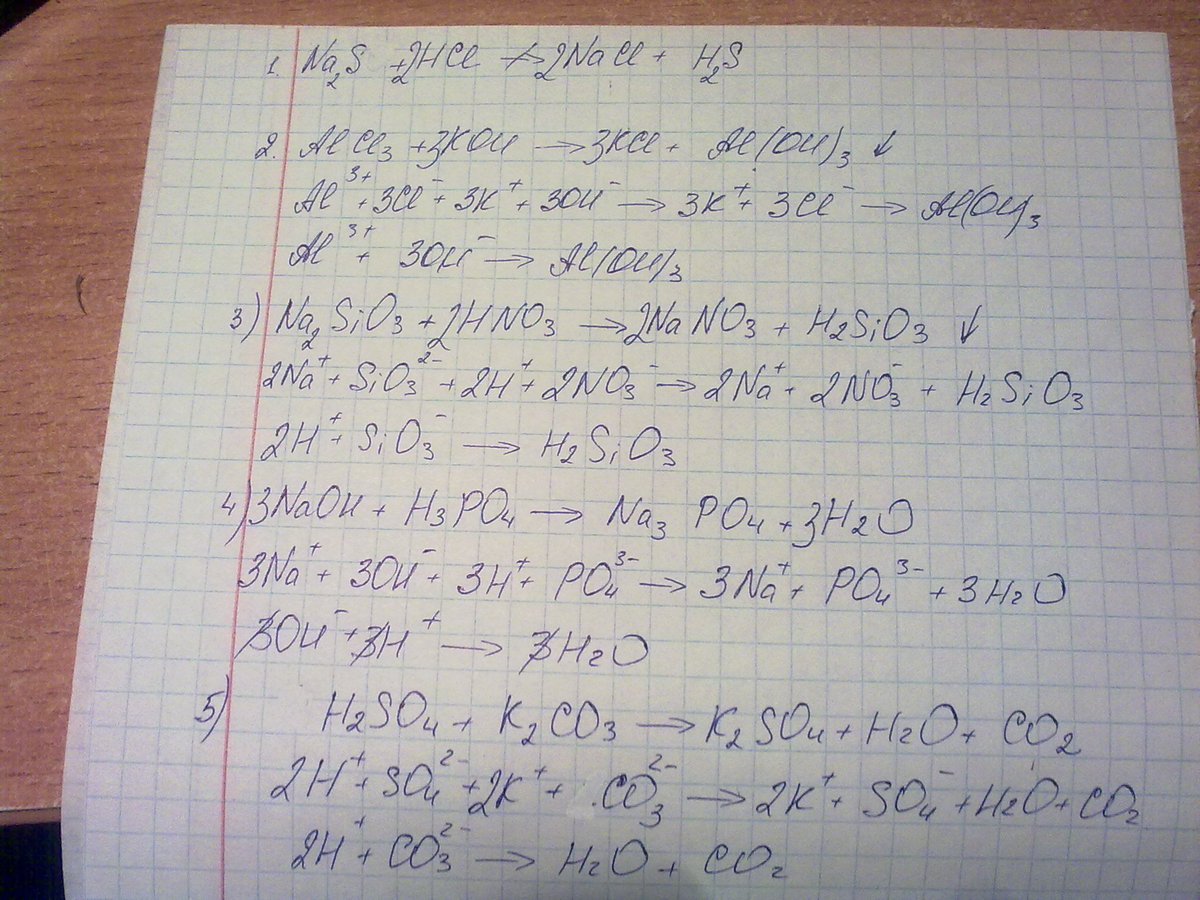 1. Na₂S + 2HCl ↛ 2NaCl + H₂S
2. AlCl₃ + 3KOH → 3KCl + Al(OH)₃ ↓
Al³⁺ + 3Cl⁻ + 3K⁺ + 3OH⁻ → 3K⁺ + 3Cl⁻ → Al(OH)₃
Al³⁺ + 3OH⁻ → Al(OH)₃
3) Na₂SiO₃ + 2HNO₃ → 2NaNO₃ + H₂SiO₃ ↓
2Na⁺ + SiO₃²⁻ + 2H⁺ + 2NO₃⁻ → 2Na⁺ + 2NO₃⁻ + H₂SiO₃
2H⁺ + SiO₃⁻ → H₂SiO₃
4) 3NaOH + H₃PO₄ → Na₃PO₄ + 3H₂O
3Na⁺ + 3OH⁻ + 3H⁺ + PO₄³⁻ → 3Na⁺ + PO₄³⁻ + 3H₂O
3OH⁻ + 3H⁺ → 3H₂O
5) H₂SO₄ + K₂CO₃ → K₂SO₄ + H₂O + CO₂
2H⁺ + SO₄²⁻ + 2K⁺ + CO₃²⁻ → 2K⁺ + SO₄⁻ + H₂O + CO₂
2H⁺ + CO₃²⁻ → H₂O + CO₂